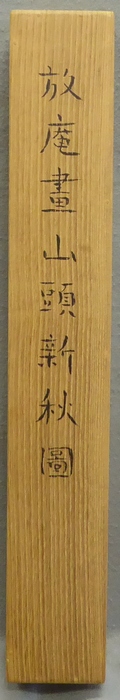 放庵畫山頭新秋圖